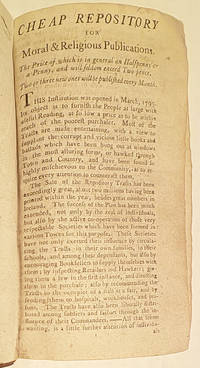 CHEAP REPOSITORY
FOR
Moral & Religious Publications.
The Price of which is in general an Halfpenny or
a Penny, and will seldom exceed Two pence.
Two or three new ones will be published every Month.
THIS Institution was opened in March, 1795.
Its object is to furnish the People at large with
useful Reading, at so low a price as to be within
reach of the poorest purchaser. Most of the
Tracts are made entertaining, with a view to
supplant the corrupt and vicious little books and
ballads which have been hung out at windows
in the most alluring forms, or hawked through
Town and Country, and have been found so
highly mischievous to the Community, as to re-
quire every attention to counteract them.
The Sale of the Repository Tracts has been
exceedingly great, about two millions having been
printed within the year, besides great numbers in
Ireland. The success of the Plan has been much
extended, not only by the zeal of individuals,
but also by the active co-operation of some very
respectable Societies which have been formed in
various Towns for this purpose. These Societies
have not only exerted their influence by circula-
ting the Tracts in their own families, in their
Schools, and among their dependants, but also by
encouraging Booksellers to supply themselves with
them; by inspecting Retailers and Hawkers,
them a few in the first instance, and directing
them in the purchase; also by recommending the
Tracts to the occupier of a stall at a fair, and by
sending them to hospitals, workhouses, and pri-
sons. The Tracts have also been liberally distri-
buted among Soldiers and Sailors through the in-
fluence of their Commanders.
wanting, is a little further attention of individu-
als